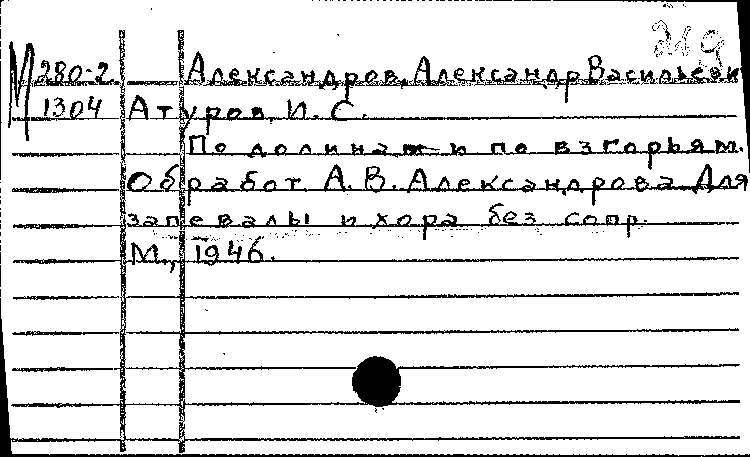 219
М 280-2 Александров, Александр Васильевич
1304 Атуров, И. С.
По долинам и по взгорьям.
Обработ. А. В. Александрова. Для
запевалы и хора без сопр.
М., 1946.